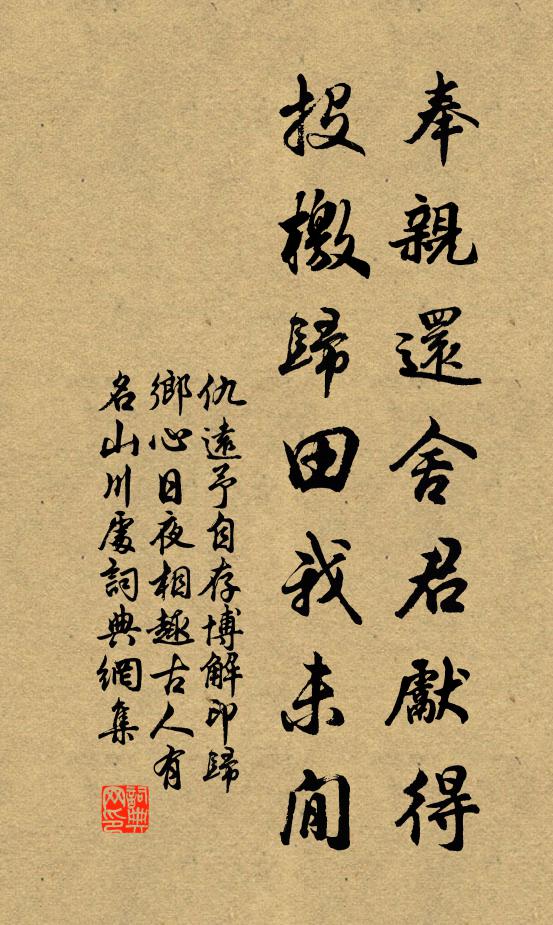 奉親還舍君獻得
投檄歸田我未閒
仇遠予自存博解印歸
鄉心日夜相趣古人有
名山川處詞典網集
詞典
网印